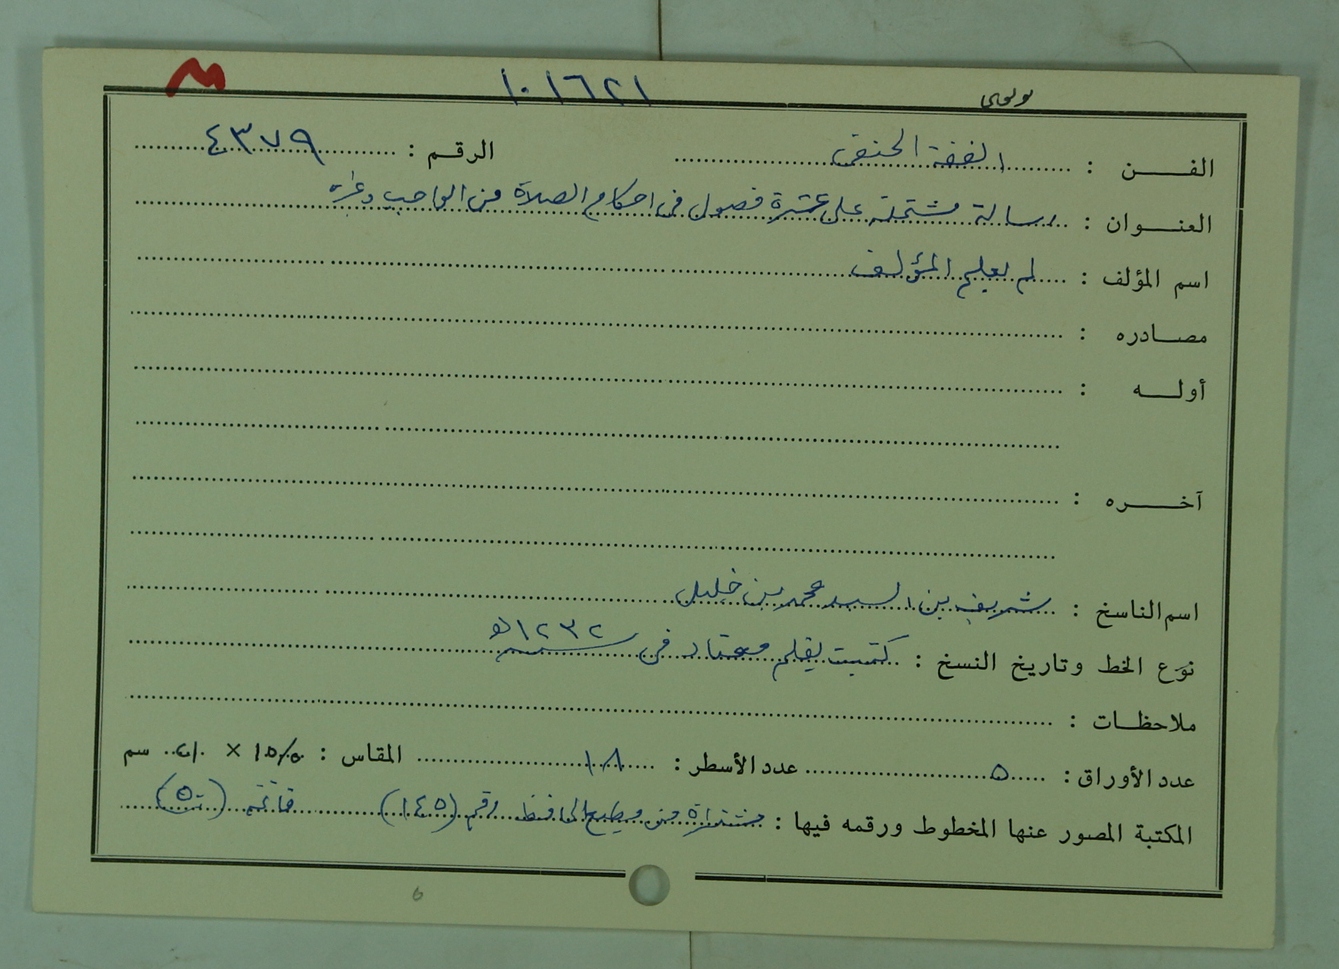 ١٠١٦٢١
الفن : الفقه الحنفى الرقم : ٤٣٧٩
العنوان : رسالة مشتملة على عشرة فصول فى احكام الصلاة من الواجب وغيره
اسم المؤلف : لم يعلم المؤلف
مصادره :
أوله :
آخره :
اسم الناسخ : شريف بن السيد محمد بن خليل
نوع الخط وتاريخ النسخ : كتبت بقلم معتاد فى سنة ١٢٣٢ه
ملاحظات :
عدد الأوراق : ٥ عدد الأسطر : ١٨ المقاس : × سم
المكتبة المصور عنها المخطوط ورقمه فيها : مشتراة من مطيع الحافظ رقم (١٤٥) قائمة (٥)